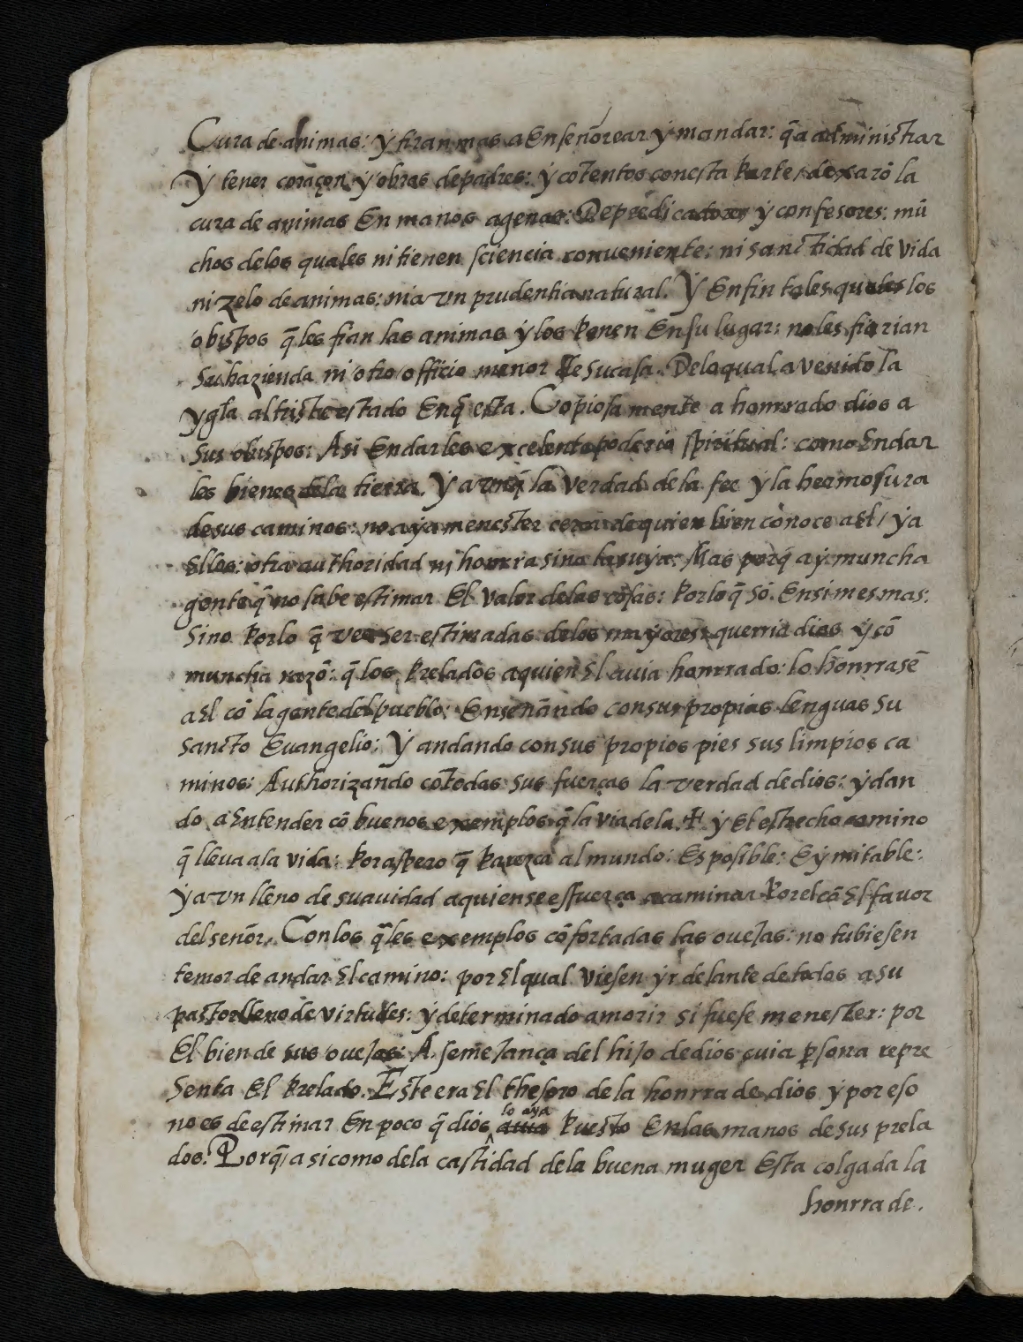 Cura de animas: ẏ tiran mas a Enseñorear ẏ mandar: q̃a administrar
Y tener coraçon ẏ obras de padres: ẏ cōtentos con esta parte, dexarō la
cura de animas En manos agenas: De predicadores ẏ confesores: mū
chos delos quales ni tienen sciencia conveniente: ni sanctidad de vida
ni zelo de animas: ni a vn prudentia natural. Y Enfin tales quales los
obispos q̃ les fian las animas ẏ los ponen En su lugar: no les fiarian
Su hazienda ni otro officio menor De su casa. Delo qual a venido la
ygl̃a al triste estado En q̃ esta. Copiosa mente a honrrado dios a
Sus obispos: Asi En darles excelente poderio spiritual: como En dar
les bienes dela tierra. Y a vnq̃ la verdad de la fee y la hermosura
de sus caminos: no aẏa menester cerca de quien bien conoce a El / ẏ a
Elles: otra authoridad ni honrra sino la suẏa: Mas porq̃ aẏ muncha
gente q̃ no sabe estimar El valor delas cosas: por lo q̃ sō. En si mesmas:
Sino por lo q̃ ven ser estimadas delos maẏores: querria dios ẏ cō
muncha razō: q̃ los prelados a quien El avia honrrado: lo honrrasē
a El cō la gente del pueblo: Enseñando con sus propias lenguas Su
Sancto Euangelio: Y andando con sus propios pies sus limpios ca
minos: Authorizando cō todas sus fuerças la verdad de dios: ẏ dan
do a Entender cō buenos exemplos q̃ la via dela ✝ ẏ El estrecho camino
q̃ lleva a la vida: por aspero q̃ parezca al mundo: Es posible: E ẏmitable:
ẏ a vn lleno de suavidad a quien se esfuerça a caminar por el cō El favor
del señor. Con los q̃les exemplos cōfortadas las ovejas: no tubiesen
temor de andar El camino: por El qual viesen ẏr delante de todos a su
pastor lleno de virtudes: ẏ determinado a morir si fuese menester: por
El bien de sus ovejas: A semejança del hijo de dios cuia p̱sona repre
Senta El prelado. Este era El thesoro de la honrra de dios ẏ por eso
no es de estimar En poco q̃ dios lo aya puesto En las manos de sus prela
dos. Porq̃ asi como dela castidad dela buena muger Esta colgada la
honrra de.